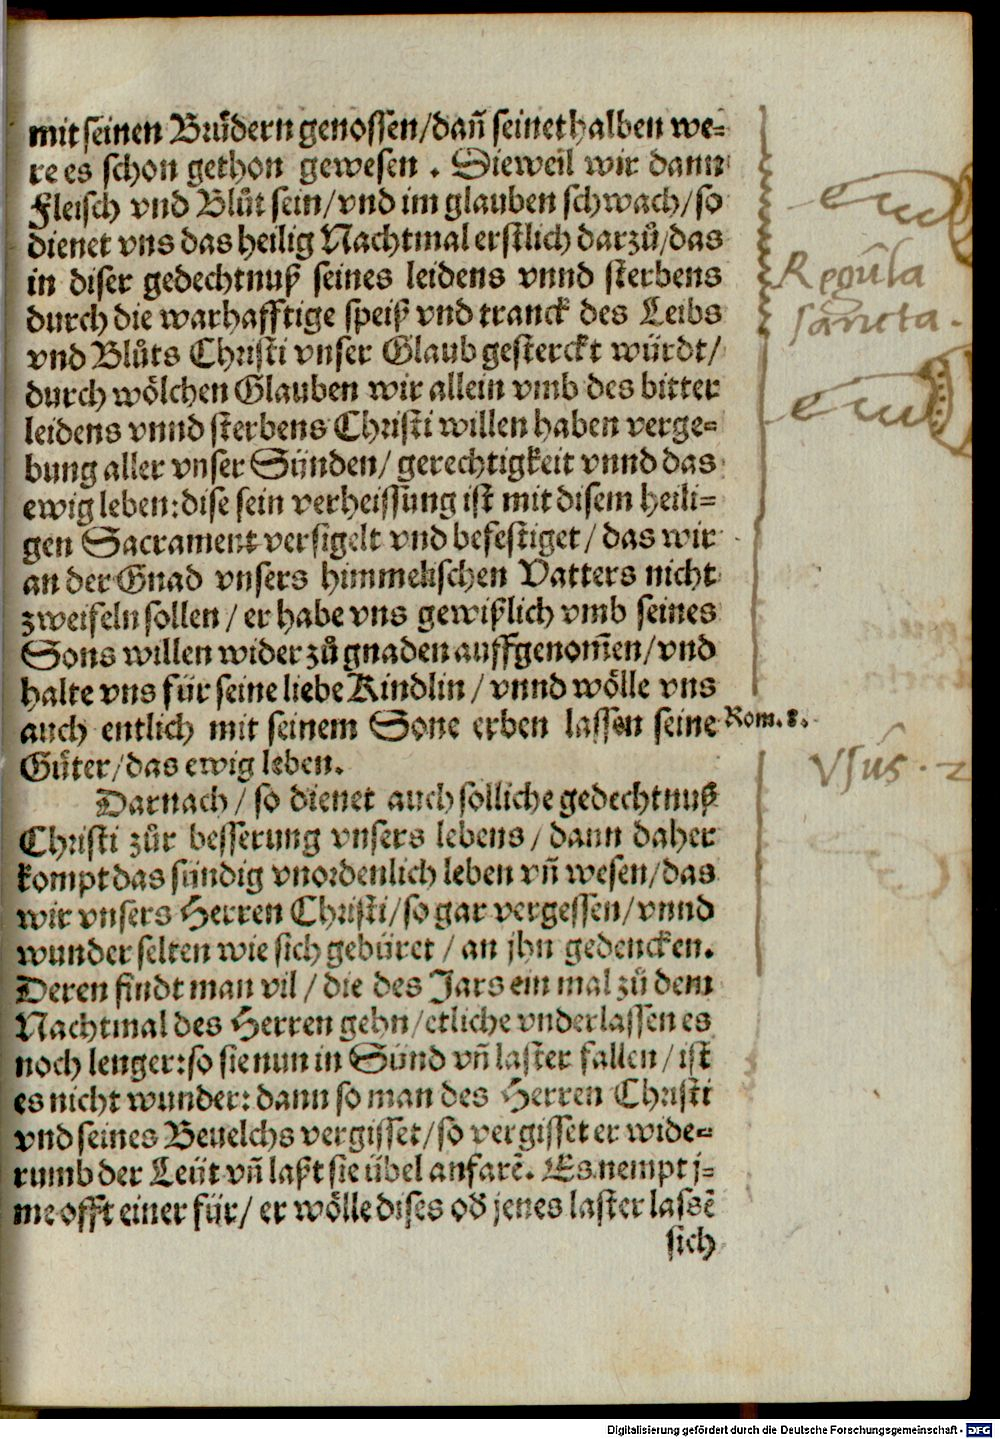 mit seinen Bruͤdern genossen/dañ seinethalben we-
re es schon gethon gewesen. Dieweil wir dann
Fleisch vnd Bluͦt sein/vnd im glauben schwach/so
dienet vns das heilig Nachtmal erstlich darzuͦ/das
in diser gedechtnuß seines leidens vnnd sterbens
durch die warhafftige speiß vnd tranck des Leibs
vnd Bluͦts Christi vnser Glaub gesterckt würdt/
durch woͤlchen Glauben wir allein vmb des bitter
leidens vnnd sterbens Christi willen haben verge-
bung aller vnser Sünden/ gerechtigkeit vnnd das
ewig leben: dise sein verheissung ist mit disem heili-
gen Sacrament versigelt vnd befestiget/ das wir
an der Gnad vnsers himmelischen Vatters nicht
zweifeln sollen/ er habe vns gewißlich vmb seines
Sons willen wider zuͦ gnaden auffgenom̃en/vnd
halte vns für seine liebe Kindlin/ vnnd woͤlle vns
auch entlich mit seinem Sone erben lassen seine
Guͤter/das ewig leben.
Darnach/ so dienet auch solliche gedechtnuß
Christi zuͦr besserung vnsers lebens/ dann daher
kompt das sündig vnordenlich leben vñ wesen/das
wir vnsers Herren Christi/so gar vergessen/vnnd
wunder selten wie sich gebüret/ an jhn gedencken.
Deren findt man vil/ die des Jars ein mal zuͦ dem
Nachtmal des Herren gehn/etliche vnderlassen es
noch lenger: so sie nun in Sünd vñ laster fallen/ ist
es nicht wunder: dann so man des Herren Christi
vnd seines Beuelchs vergisset/so vergisset er wide-
rumb der Leüt vñ laßt sie übel anfarẽ. Es nempt j-
me offt einer für/ er woͤlle dises oď jenes laster lassẽ
sich
Rom. 8.
Regula
sancta.
Vsus. 2
Digitalisierung gefördert durch die Deutsche Forschungsgemeinschaft - DFG